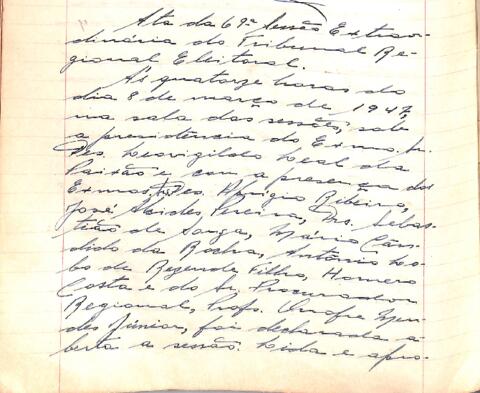 Ata da 69ª Sessão Extraor-
dinária do Tribunal Re-
gional Eleitoral.
Às quatorze horas do
dia 8 de março de 1947,
na sala das sessões, sob
a presidência do Exmo. Sr.
Des. Leovigildo Leal da
Paixão e com a presença dos
Exmos. Des. Amigo Ribeiro,
José Alcides Pereira, Drs. Sebas-
tião de Souza, Mário Cân-
dido da Rocha, Antônio Lo-
bo de Rezende Filho, Homero
Costa e do Sr. Procurador
Regional, Prof. Onofre Men-
des Júnior, foi declarada a-
berta a sessão. Lida e apro-